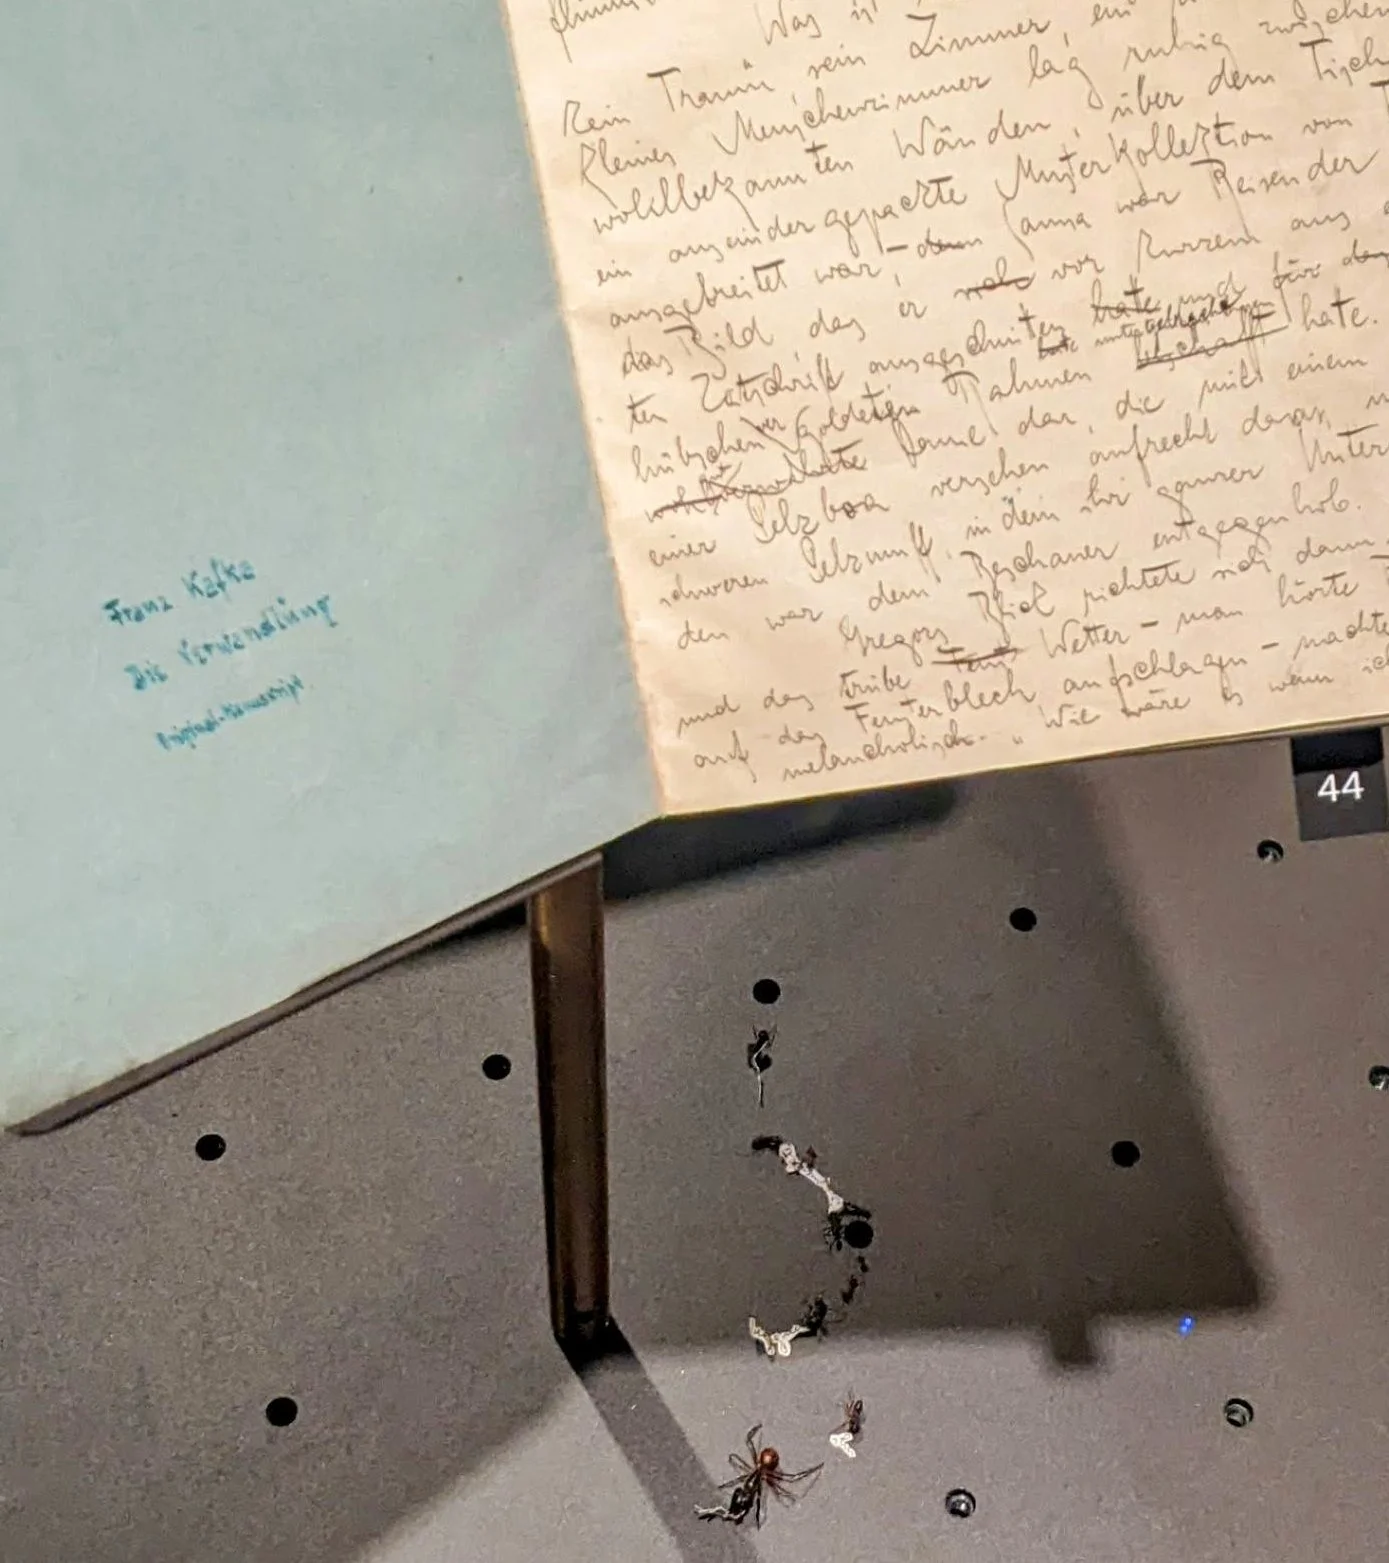 Franz Kafka
Die Verwandlung
Original-Manuscript
Was ist
Kein Traum, sein Zimmer, ein
kleines Menschenzimmer lag ruhig zwischen
wohlbekannten Wänden, über dem Tisch
ein auseinandergepackte Musterkollektion von
ausgebreitet war, – denn Samsa war Reisender
das Bild das er sich vor Kurzem aus
ten Zeitschrift ausgeschnitten hatte und für
untergebracht hate.
hübschen vergoldeten Rahmen
Dame dar, die mit einem
einer Pelzboa versehen aufrecht dasass
schweren Pelzmuff, in dem ihr ganzer Unter
den war dem Beschauer entgegenhob.
Gregors Blick richtete sich dann
und das trübe Wetter – man hörte
auf das Fensterblech aufschlagen – machte
melancholisch. „Wie wäre es wenn ich
44